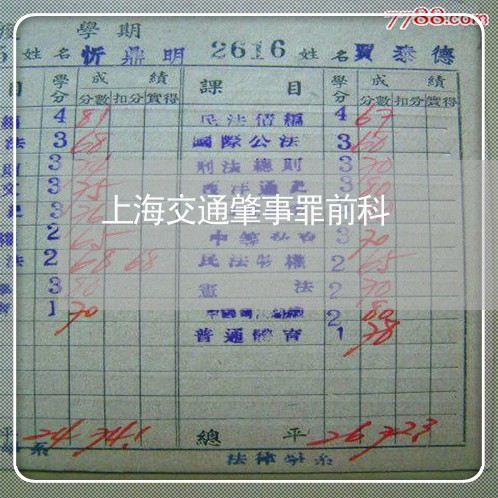 7788.com
學期
姓名 忻鼎明 2616 姓名 賈泰德
目 學分 成績 課目 學分 成績
分數 扣分 實得 分數 扣分 實得
4 81 民法債編 4 67
法 3 68 國際公法 3 60
3 刑法總則 3 70
3 75 西洋通史 3 80
3
上海交通肇事罪前科
2 65 3 70
法 2 68 68 民法物權 2 65
3 80 憲法 2 70
1 70 2 80
普通體育 1 78
平 24 74.1 總平 26 72.3
系 法律學系